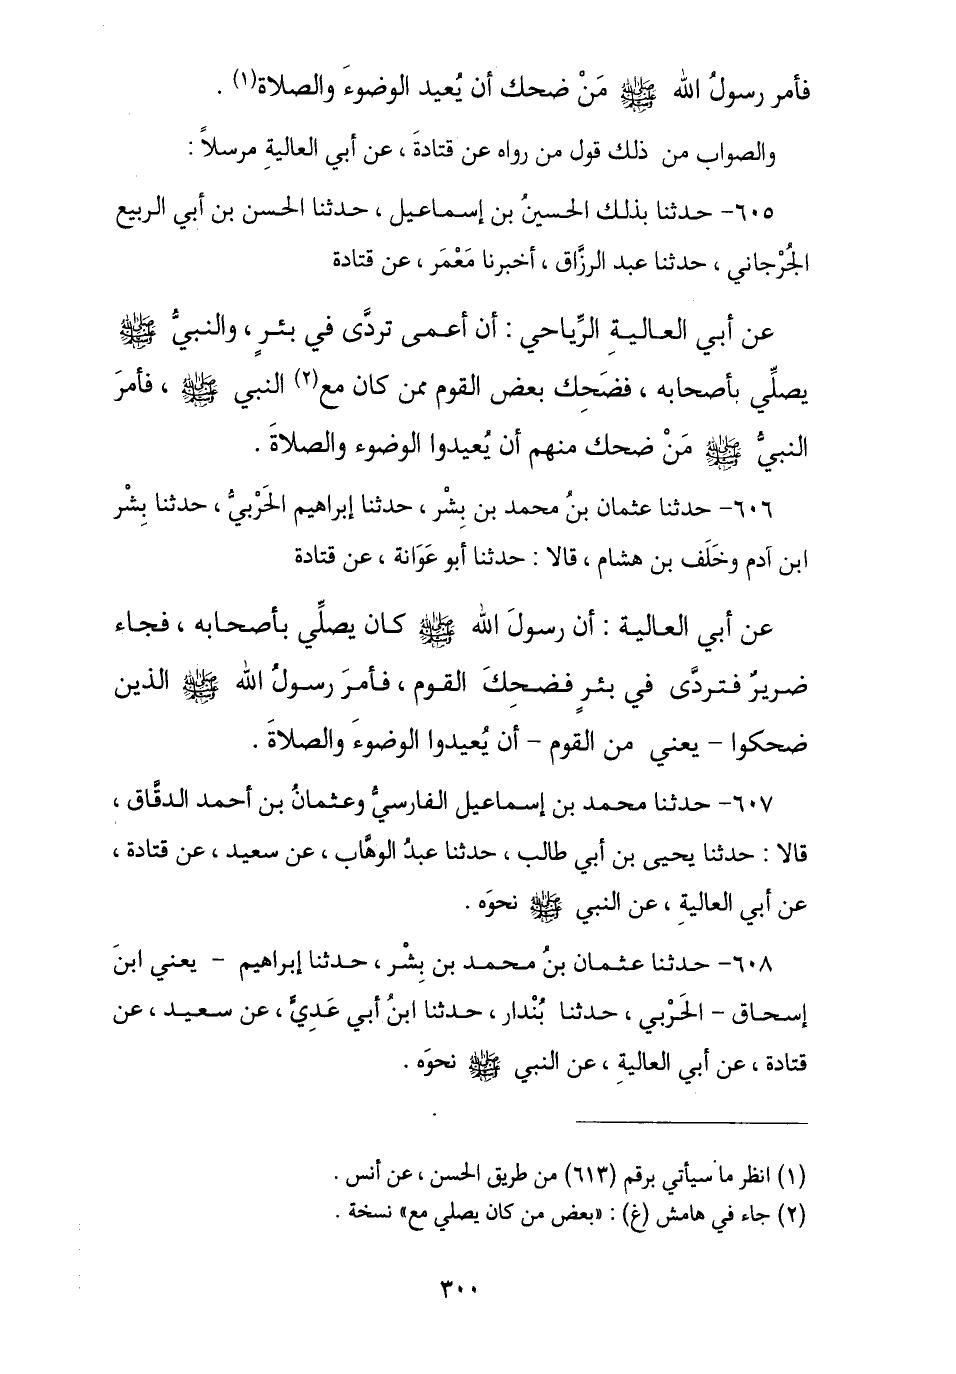 فأمر رسولُ الله ﷺ مَنْ ضحك أن يُعيد الوضوءَ والصلاة(١) .
والصواب من ذلك قول من رواه عن قتادةَ ، عن أبي العاليةِ مرسلاً :
٦٠٥- حدثنا بذلك الحسينُ بن إسماعيل ، حدثنا الحسن بن أبي الربيع
الجُرْجاني ، حدثنا عبد الرزَّاق ، أخبرنا مَعْمَر ، عن قتادة
عن أبي العاليةِ الرِّياحي : أن أعمى تردَّى في بئرٍ ، والنبيُّ ﷺ
يصلِّي بأصحابه ، فضَحِك بعض القوم ممن كان مع(٢) النبي ﷺ ، فأمرَ
النبيُّ ﷺ مَنْ ضحك منهم أن يُعيدوا الوضوء والصلاةَ .
٦٠٦- حدثنا عثمان بنُ محمد بن بِشْر ، حدثنا إبراهيم الحَرْبيُّ ، حدثنا بِشْر
ابن آدم وخَلَف بن هشام ، قالا : حدثنا أبو عَوَانة ، عن قتادة
عن أبي العالية : أن رسولَ الله ﷺ كان يصلِّي بأصحابه ، فجاء
ضريرٌ فتردَّى في بئرٍ فضحِكَ القوم ، فأمرَ رسولُ الله ﷺ الذين
ضحكوا - يعني من القوم - أن يُعيدوا الوضوءَ والصلاةَ .
٦٠٧- حدثنا محمد بن إسماعيل الفارسيُّ وعثمانُ بن أحمد الدقَّاق ،
قالا : حدثنا يحيى بن أبي طالب ، حدثنا عبدُ الوهَّاب ، عن سعيد ، عن قتادة ،
عن أبي العاليةِ ، عن النبي ﷺ نحوَه .
٦٠٨- حدثنا عثمان بنُ محمد بن بِشْر ، حدثنا إبراهيم - يعني ابنَ
إسحاق - الحَرْبي ، حدثنا بُنْدار ، حدثنا ابنُ أبي عَدِيٍّ ، عن سعيد ، عن
قتادة ، عن أبي العاليةِ ، عن النبي ﷺ نحوَه .
(١) انظر ما سيأتي برقم (٦١٣) من طريق الحسن ، عن أنس .
(٢) جاء في هامش (غ) : «بعض من كان يصلي مع» نسخة .
٣٠٠